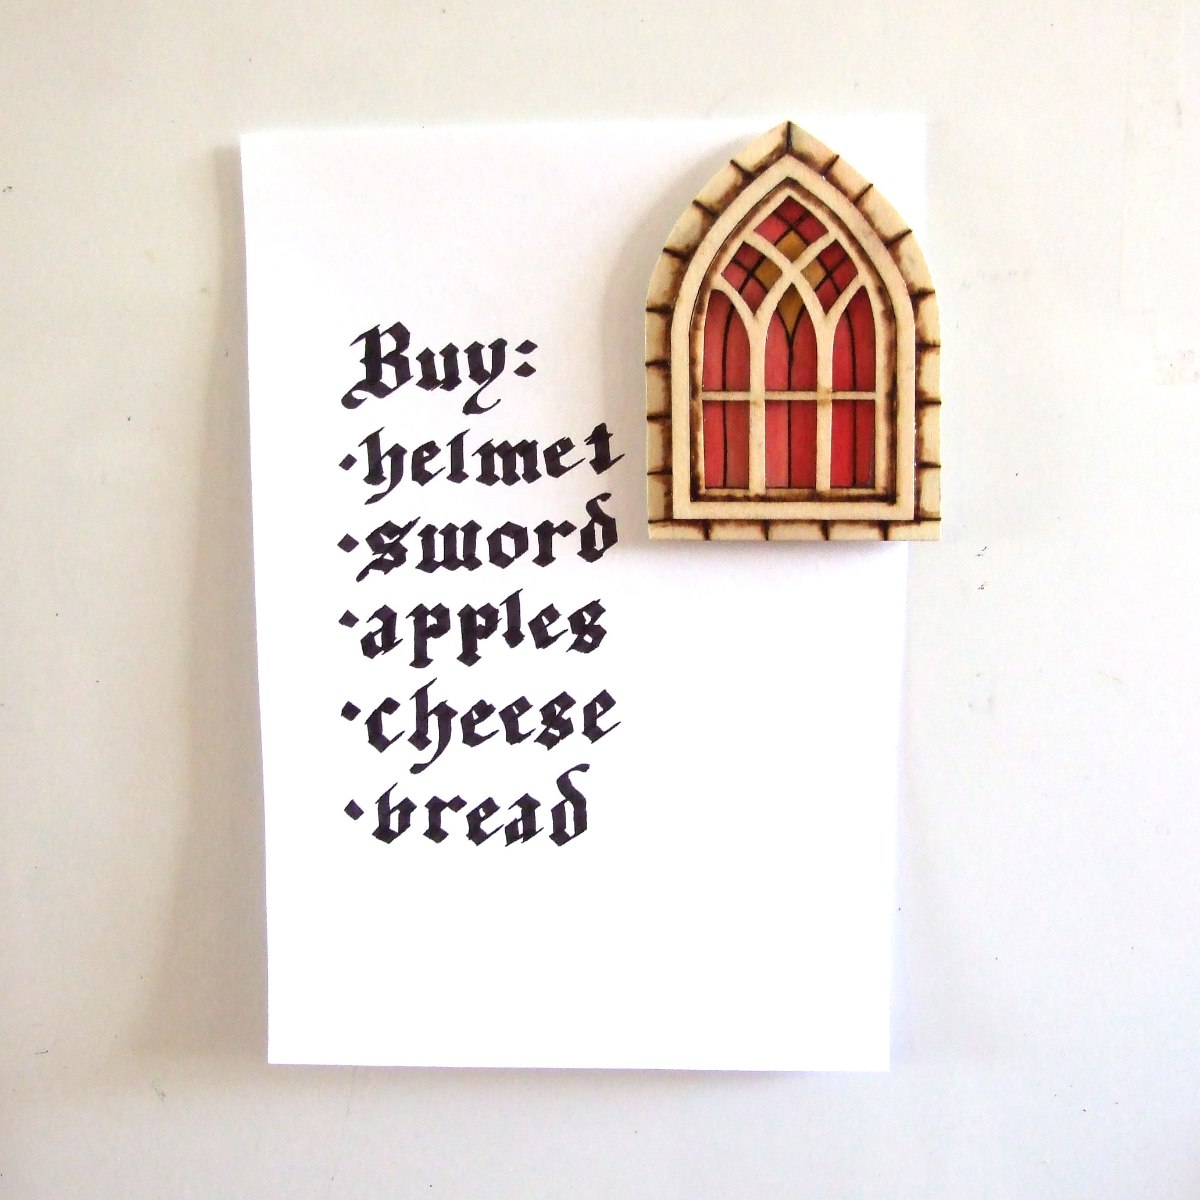 Buy:
·helmet
·sword
·apples
·cheese
·bread